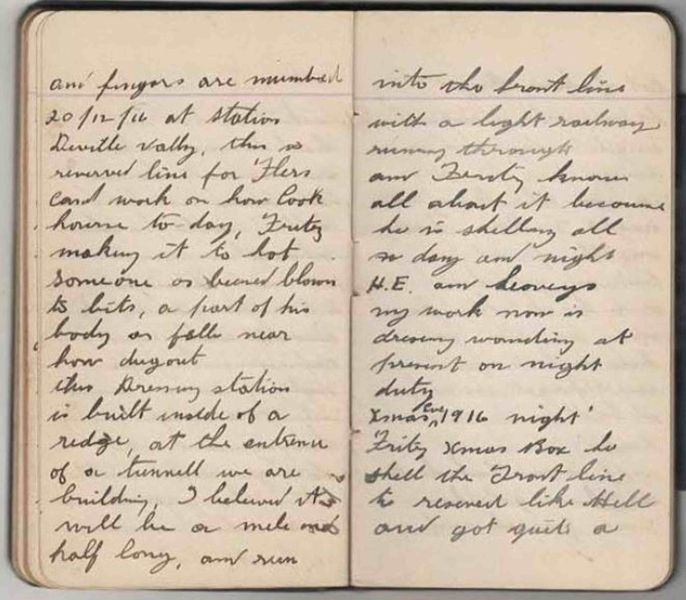 and fingers are numbed
20/12/16 at station
Deville Vally, this is
reserved line for Flers
cand work on how Cook
house to-day, Fritz
making it to hot
someone as beened blown
to bits, a part of his
body as falle near
how dugout
this Dressing station
is built inside of a
redge, at the entrence
of a tunnell we are
building, I beleved it
will be a mile and
half long, and run
into the front line
with a light railway
runing through
and Fritz knows
all about it because
he is shelling all
day and night
H.E. and heaveys
my work now is
dressing wounding at
present on night
duty
Xmas Eve 1916 night
Fritz Xmas Box he
shell the Front line
to reserved like Hell
and got quite a